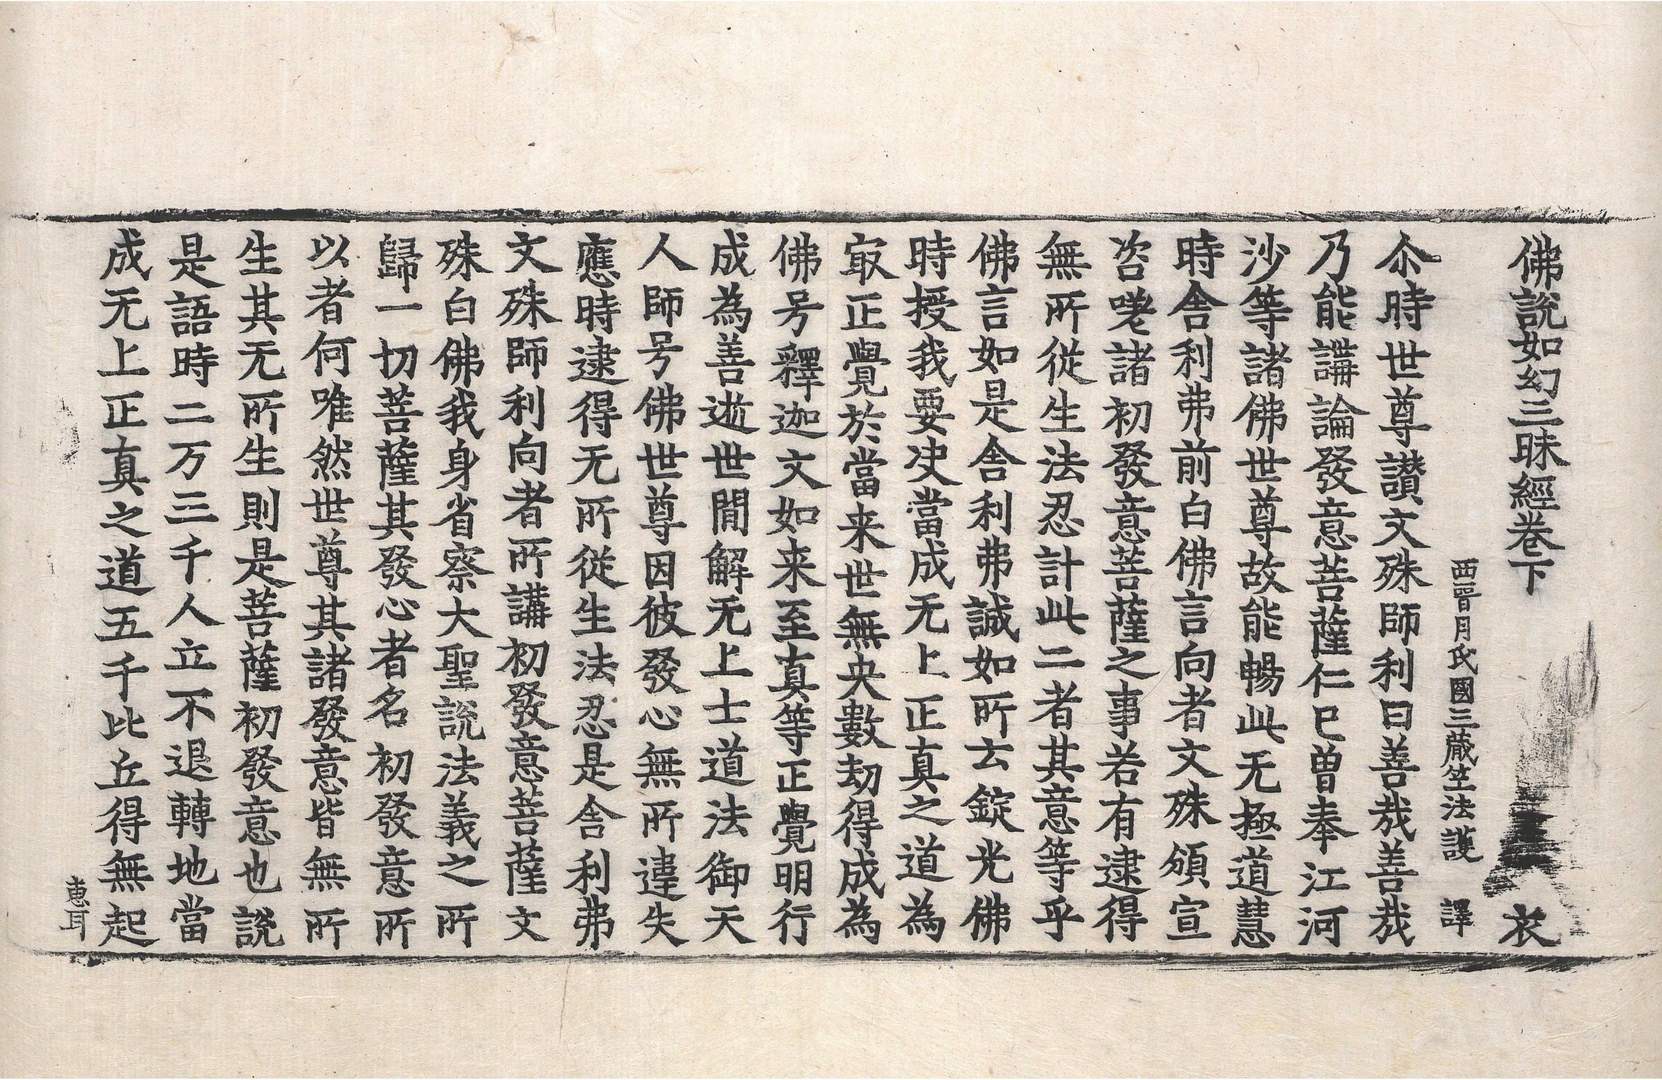 佛說如幻三昧經卷下 衣
西晉月氏國三藏竺法護 譯
尒時世尊讃文殊師利曰善㢤善㢤
乃能講論發意菩薩仁已曽奉江河
沙等諸佛世尊故能暢此无極道慧
時舎利弗前白佛言向者文殊頒宣
咨嗟諸初發意菩薩之事若有逮得
無所從生法忍計此二者其意等乎
佛言如是舎利弗誠如所云錠光佛
時授我要决當成无上正真之道為
㝡正覺於當来世無央數劫得成為
佛号釋迦文如来至真等正覺明行
成為善逝世閒解无上士道法御天
人師号佛世尊因彼發心無所違失
應時逮得无所從生法忍是舎利弗
文殊師利向者所講初發意菩薩文
殊白佛我身省察大聖說法義之所
歸一切菩薩其發心者名初發意所
以者何唯然世尊其諸發意皆無所
生其无所生則是菩薩初發意也說
是語時二万三千人立不退轉地當
成无上正真之道五千比丘得無起
惠耳